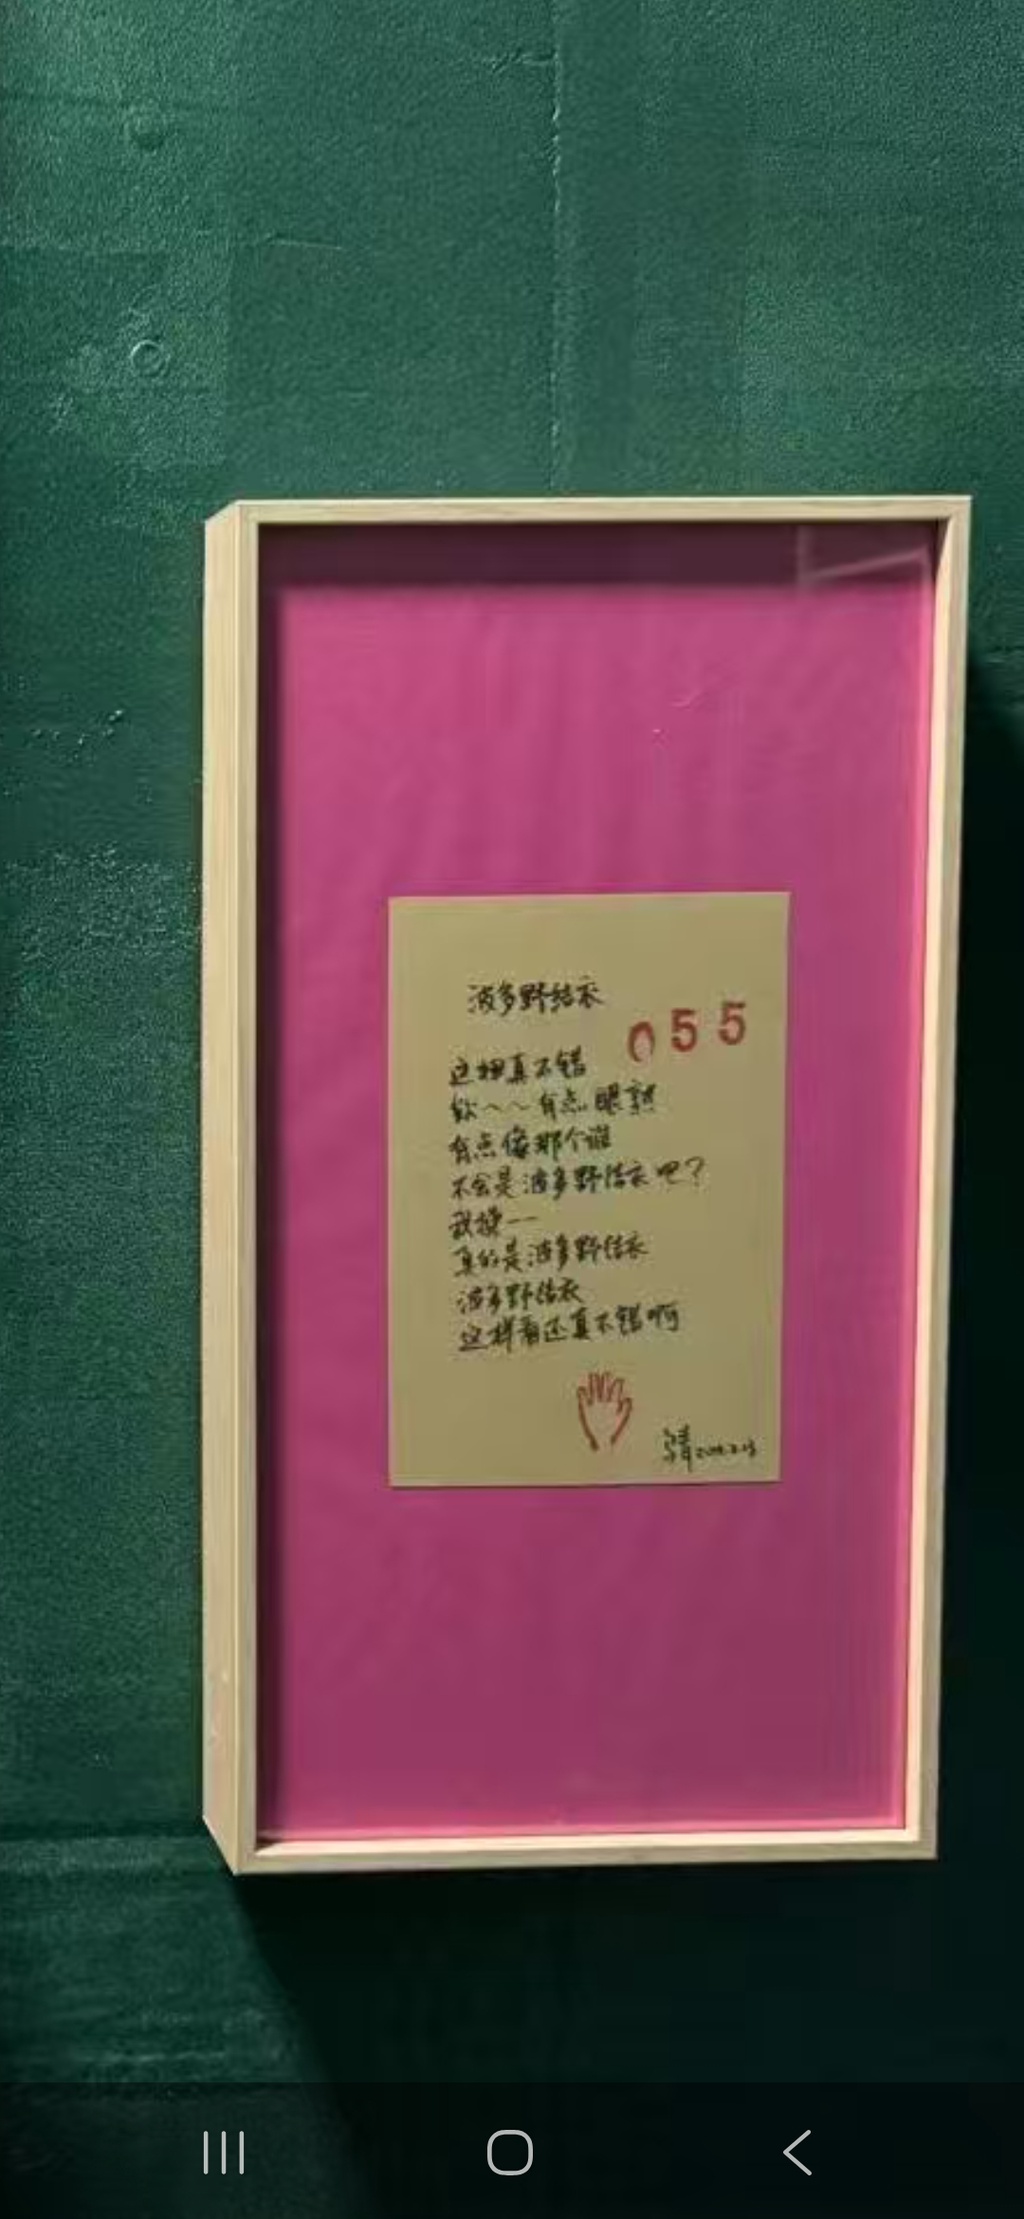 波多野结衣
055
这妞真不错
欸～～有点眼熟
有点像那个谁
不会是波多野结衣吧？
我操——
真的是波多野结衣
波多野结衣
这样看还真不错啊